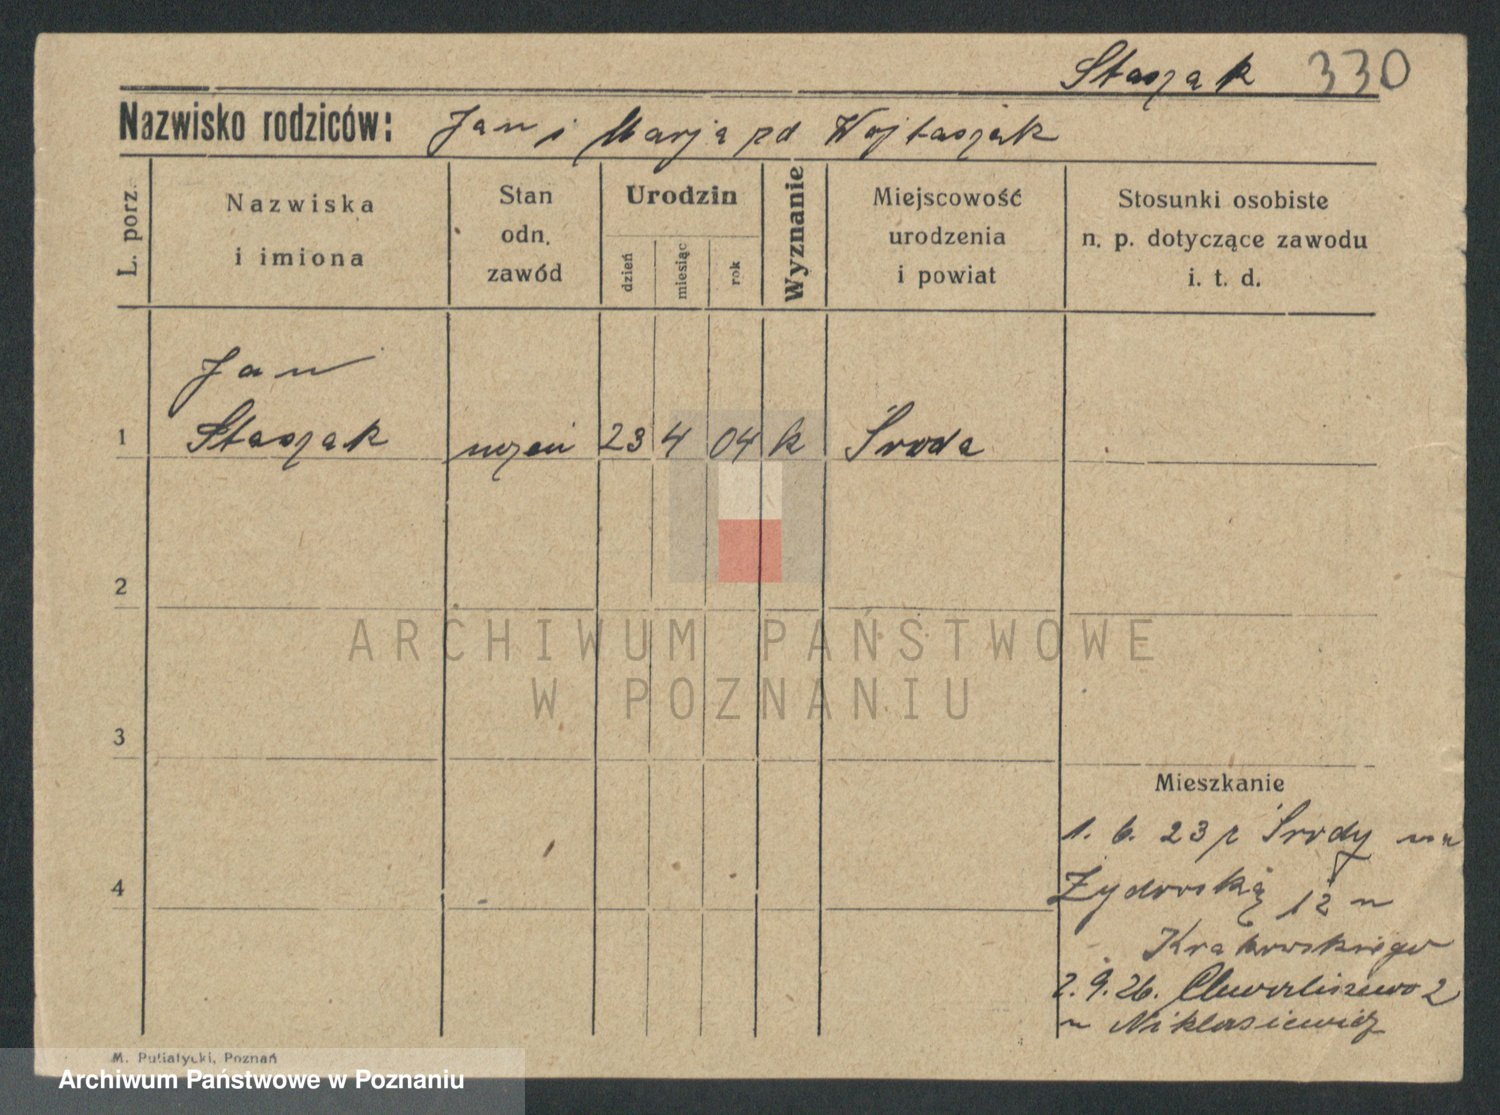 Staszak 330
Nazwisko rodziców: Jan i Marja zd Wojtaszak
L. porz.
Nazwiska
i imiona
Stan
odn.
zawód
Urodzin
dzień
miesiąc
rok
Wyznanie
Miejscowość
urodzenia
i powiat
Stosunki osobiste
n. p. dotyczące zawodu
i. t. d.
Jan
1 Staszak uczeń 23 4 04 k Środa
2
ARCHIWUM PAŃSTWOWE
W POZNANIU
3
Mieszkanie
1. 6. 23 z Środy na
4 Żydowską 12 u
Krakowskiego
2. 9. 26. Chwaliszewo 2
u Niklasiewicz
M. Putiatycki, Poznań
Archiwum Państwowe w Poznaniu